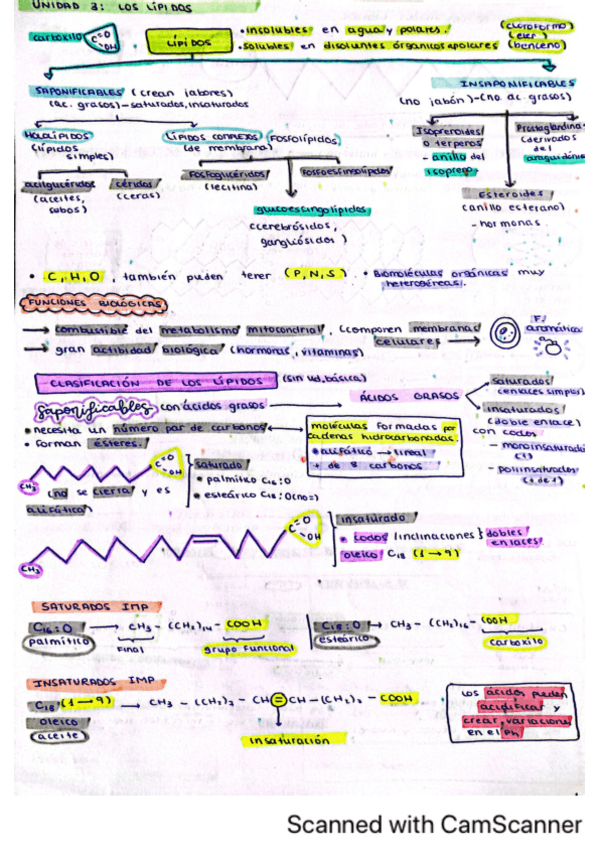 UNIDAD 3: LOS LÍPIDOS
carboxilo C=O OH
LÍPIDOS
• insolubles en agua y polares.
• solubles en disolventes órganicos apolares
(cloroformo)
(eter)
(benceno)
SAPONIFICABLES (crean jabones)
(ac. grasos) - saturados, insaturados
INSAPONIFICABLES
(no jabón) - (no ac. grasos)
HOLOLÍPIDOS
(lípidos simples)
LÍPIDOS COMPLEJOS (FOSFOLÍPIDOS)
(de membrana)
acilglicéridos
(aceites, sebos)
céridos
(ceras)
Fosfoglicéridos
(lecitina)
Fosfoesfingolípidos
glucoesfingolípidos
(cerebrósidos,
gangliósidos)
Isoprenoides
o terpenos
- anillo del
isopreno
Prostaglandina
(derivados
del
araquidónic
Esteroides
(anillo esterano)
- hormonas
• C, H, O, también pueden tener (P, N, S). • Biomoléculas orgánicas muy
heterogéreas.
FUNCIONES BIOLÓGICAS
→ combustible del metabolismo mitocondrial, (componen membranas
celulares →
F/
aromática
→ gran actibidad biológica (hormonas, vitaminas)
CLASIFICACIÓN DE LOS LÍPIDOS (sin ud. básica)
Saponificables con ácidos grasos
ÁCIDOS GRASOS
saturados
(enlaces simples)
insaturados
(doble enlace)
con codos
- monoinsaturado
(1)
- poliinsaturados
(+ de 1)
• necesita un número par de carbonos
• forman ésteres.
moléculas formadas por
cadenas hidrocarbonadas.
• alifático → lineal
+ de 8 carbonos
C=O OH
CH3 (no se cierra y es
alifático)
saturado
• palmítico C16:0
• esteárico C18:0 (no=)
C=O OH
CH3
insaturado
• codos (inclinaciones } dobles
enlaces
oleico C18 (1→9)
SATURADOS IMP
C16:0 → CH3 - (CH2)14 - COOH
palmítico
Final
grupo funcional
C18:0 → CH3 - (CH2)16 - COOH
esteárico
carboxilo
INSATURADOS IMP
C18 (1→9) → CH3 - (CH2)7 - CH=CH - (CH2)7 - COOH
oleico
(aceite)
insaturación
Los ácidos pueden
acidificar y
crear variaciones
en el Ph
Scanned with CamScanner